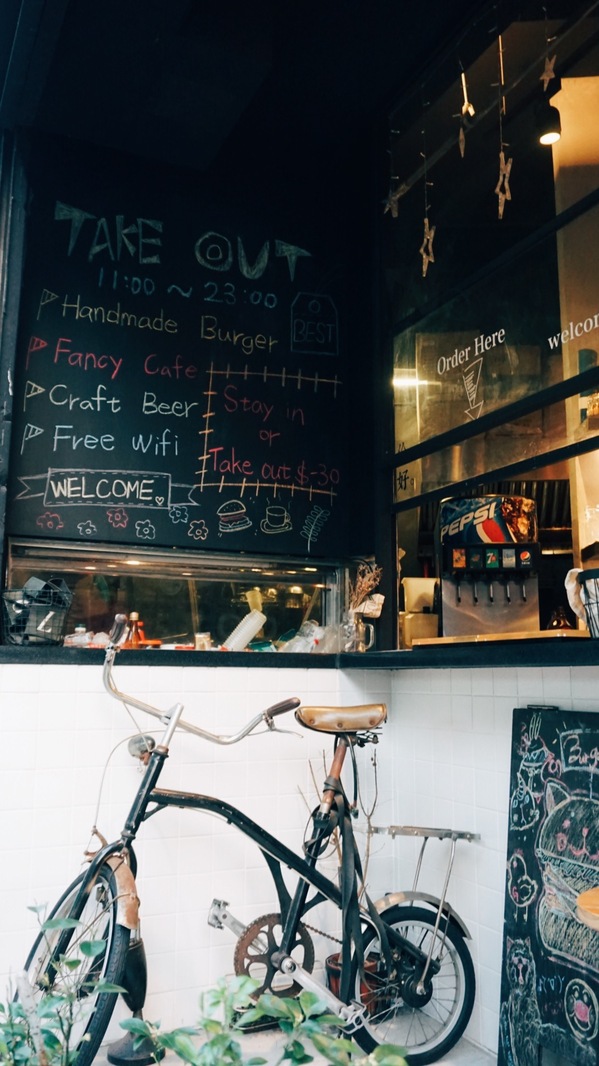 TAKE OUT
11:00 ~ 23:00
Handmade Burger
BEST
Fancy Cafe
Craft Beer
Free Wifi
Stay in
or
Take out $-30
WELCOME
Order Here
welcom
好
PEPSI
Burg